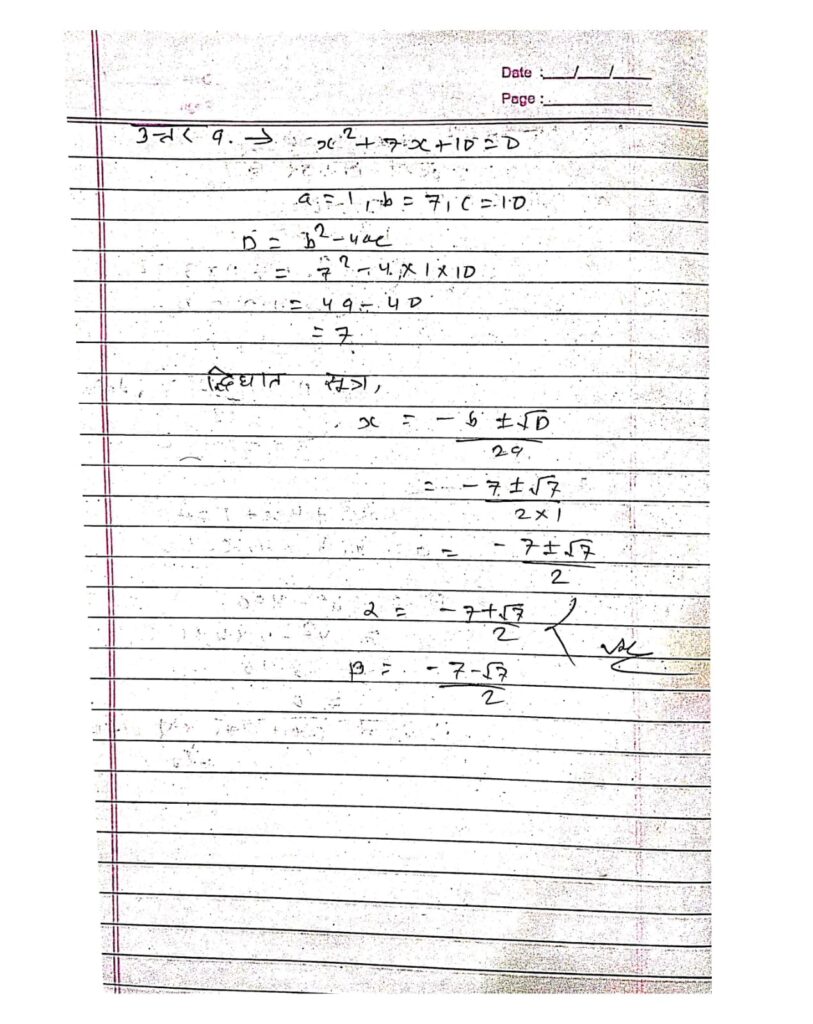 Date : __/__/__
Page :
उत्तर 9. → x² + 7x + 10 = 0
a = 1, b = 7, c = 10
D = b² - 4ac
= 7² - 4 × 1 × 10
= 49 - 40
= 7
द्विघात सूत्र,
x = -b ± √D / 2a
= -7 ± √7 / 2×1
= -7 ± √7 / 2
α = -7 + √7 / 2
β = -7 - √7 / 2